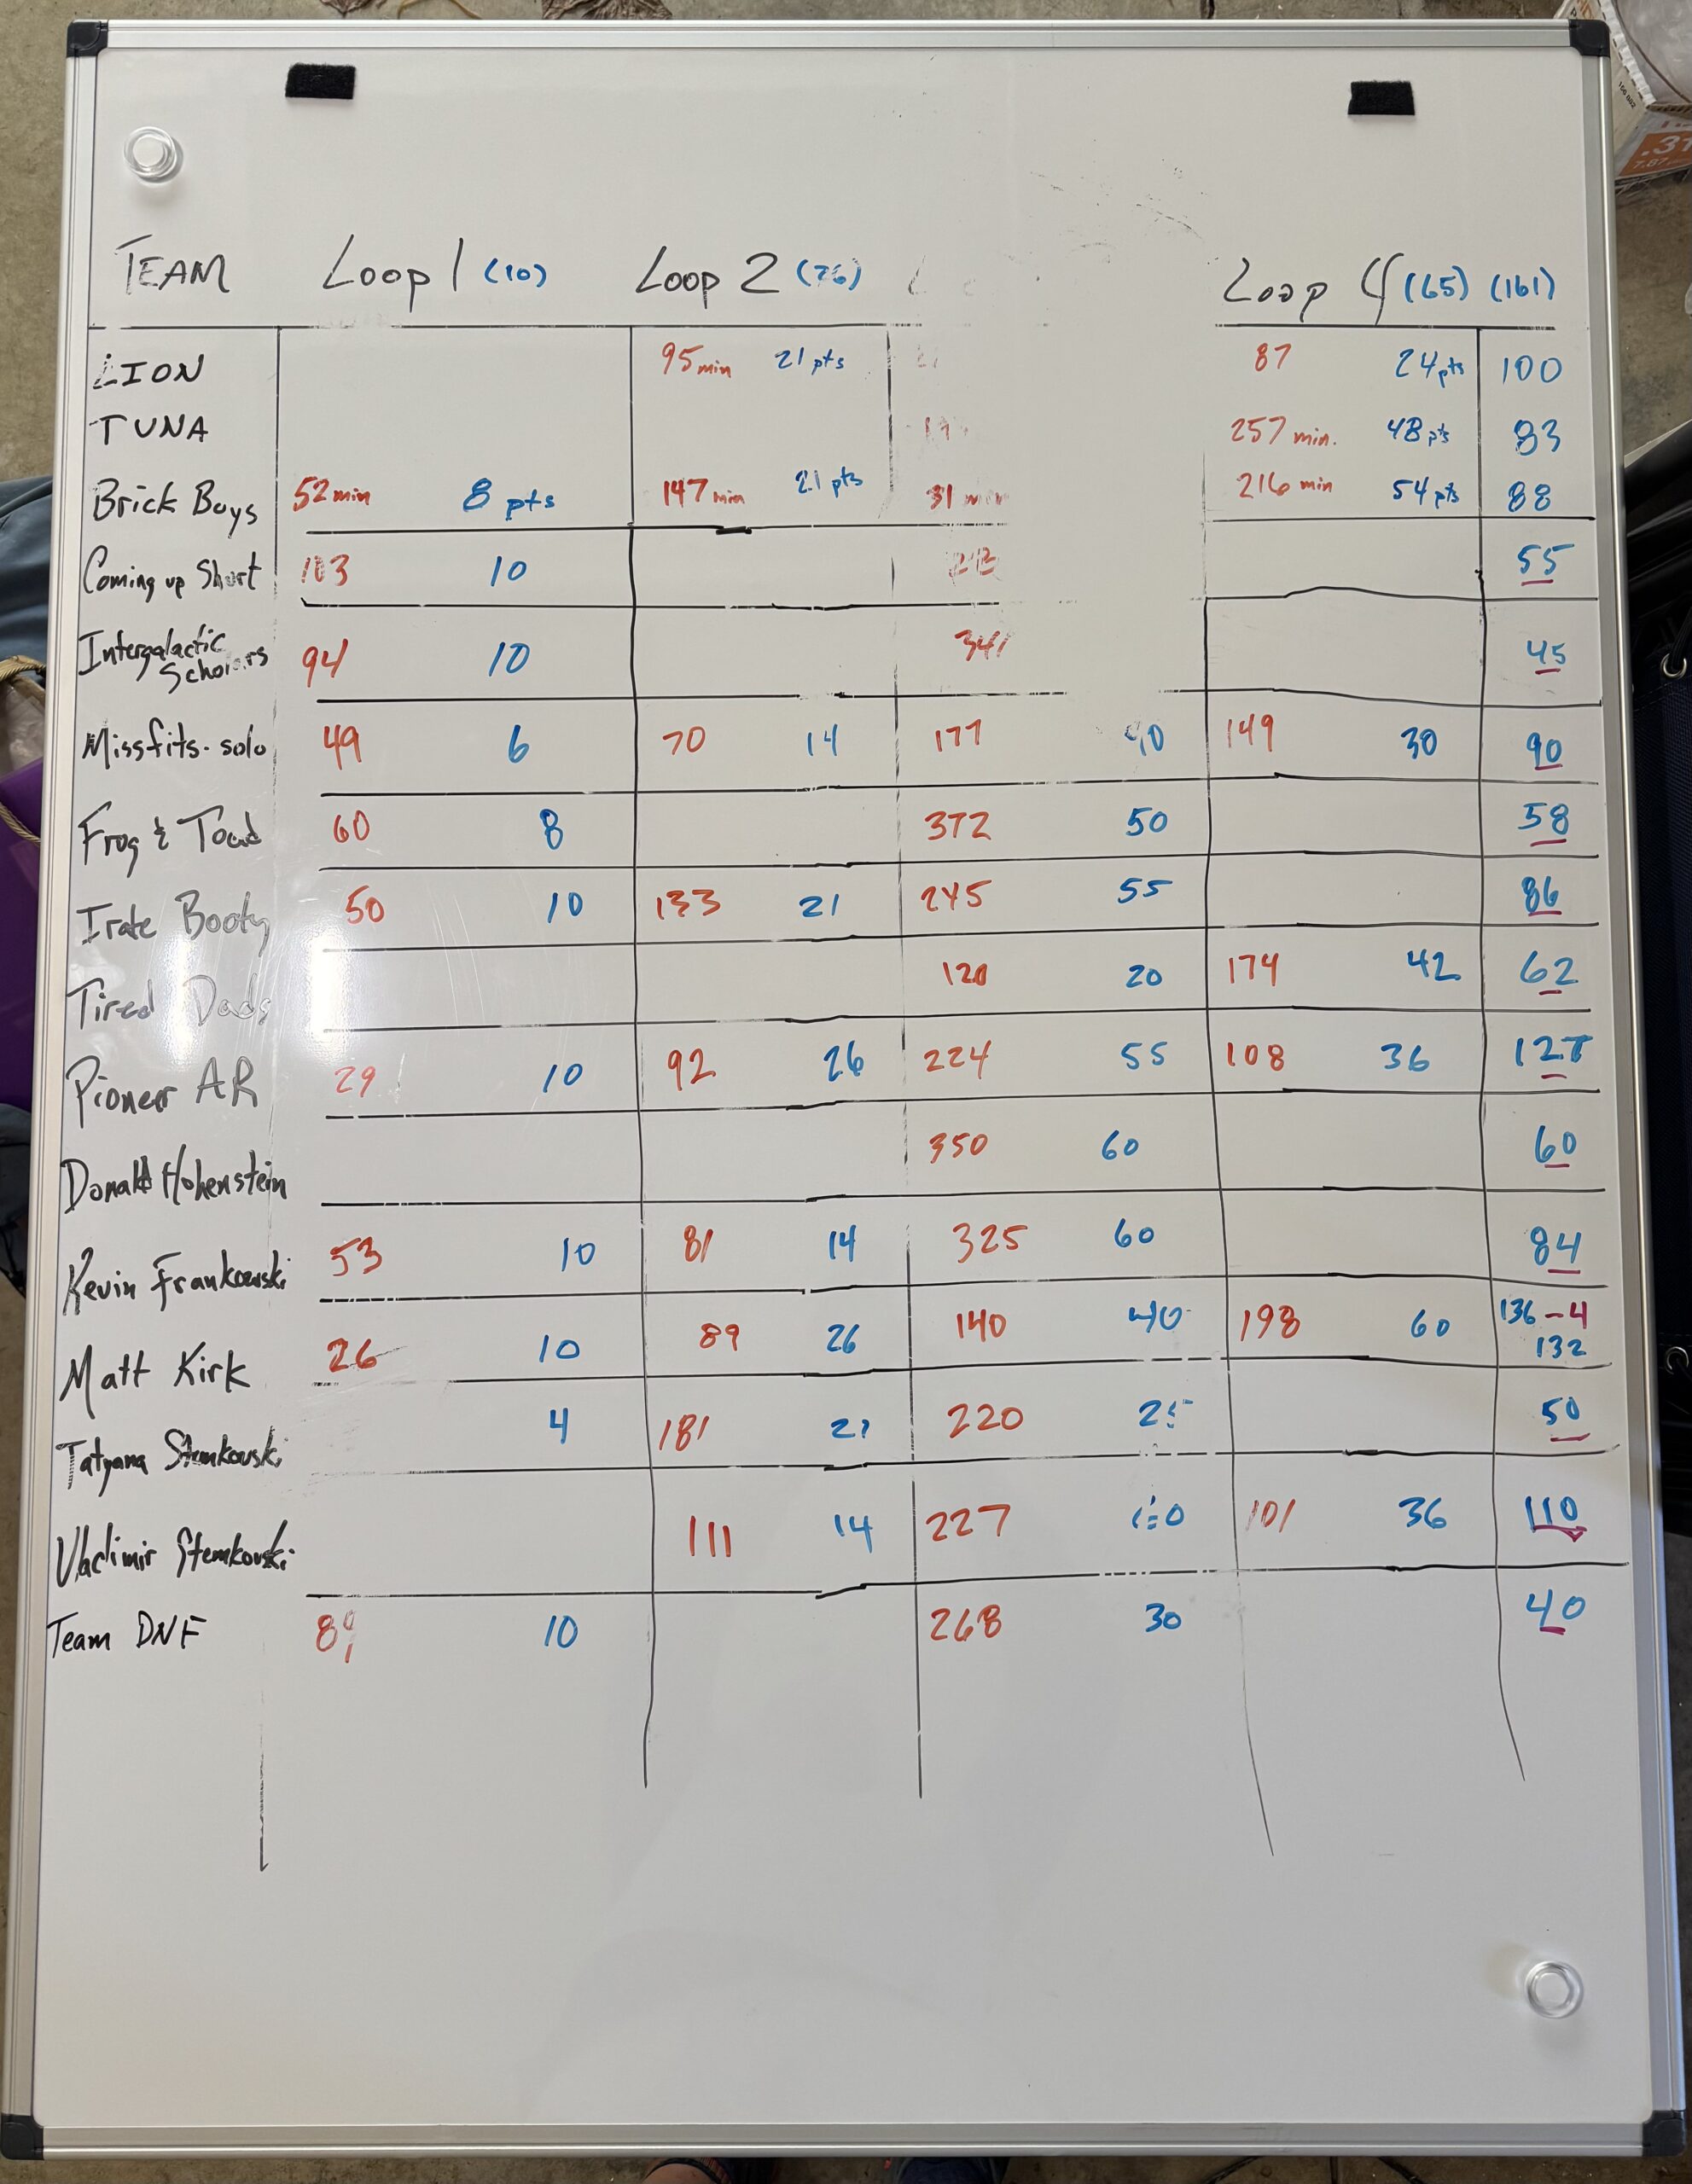 TEAM Loop 1 (10) Loop 2 (26) Loop 4 (65) (161)
LION 95 min 21 pts 87 24 pts 100
TUNA 257 min. 48 pts 83
Brick Boys 52 min 8 pts 147 min 21 pts 31 216 min 54 pts 88
Coming up Short 103 10 55
Intergalactic Scholars 94 10 341 45
Missfits. solo 49 6 70 14 177 40 149 30 90
Frog & Toad 60 8 372 50 58
Irate Booty 50 10 133 21 245 55 86
Tired Dads 120 20 174 42 62
Pioneer AR 29 10 92 26 224 55 108 36 127
Donald Hohenstein 350 60 60
Kevin Frankowski 53 10 81 14 325 60 84
Matt Kirk 26 10 89 26 140 40 198 60 136-4
132
Tatyana Stemkovski 4 181 21 220 25 50
Vladimir Stemkovski 111 14 227 60 101 36 110
Team DNF 10 268 30 40